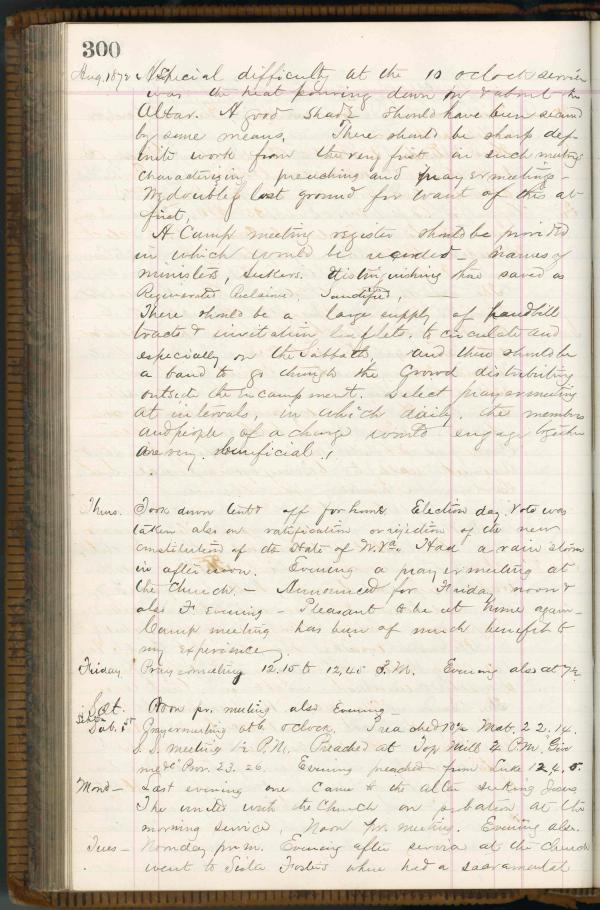 300
Aug. 1872 A Special difficulty at the 10 o clock service
was the heat pouring down on & about the
Altar. A good shade should have been secured
by some means. There should be sharp def-
inite work from the very first in such meetings
characterizing preaching and prayer meetings -
We doubtless lost ground for want of this at
first.
A Camp meeting register should be provided
in which would be recorded - names of
ministers, seekers. distinguishing those saved as
Regenerated Reclaimed, Sanctified,
There should be a large supply of handbill
tracts & invitation leaflets. to circulate and
especially on the Sabbath, and there should be
a band to go through the Crowd distributing
outside the encampment. Select prayer meeting
at intervals, in which daily, the members
and people of a charge would engage together
are very beneficial!
Thurs. Took down tent & off for home Election day. Vote was
taken also on ratification or rejection of the new
constitution of the State of W.Va. Had a rain storm
in afternoon. Evening a prayer meeting at
the Church. - Announced for Friday noon &
also F. evening - Pleasant to be at home again -
Camp meeting has been of much benefit to
my experience.
Friday Prayer meeting 12.15 to 12,45 P.M. Evening also at 7½
Sat. Noon pr. meeting also Evening -
Sab. 1st Prayer meeting at 6 oclock. Preached 10½ Mat. 22.14.
S.S. meeting 1½ P.M. Preached at Top Mill 4 P.M. "Give
me &c" Prov. 23.26. Evening preached from Luke 12.4,5.
Mond - Last evening one came to the altar seeking Jesus
The united with the Church on probation at the
morning service, Noon pr. meeting. Evening also.
Tues - Noonday pr. m. Evening after service at the Church
went to Sister Fosters where had a sacramental